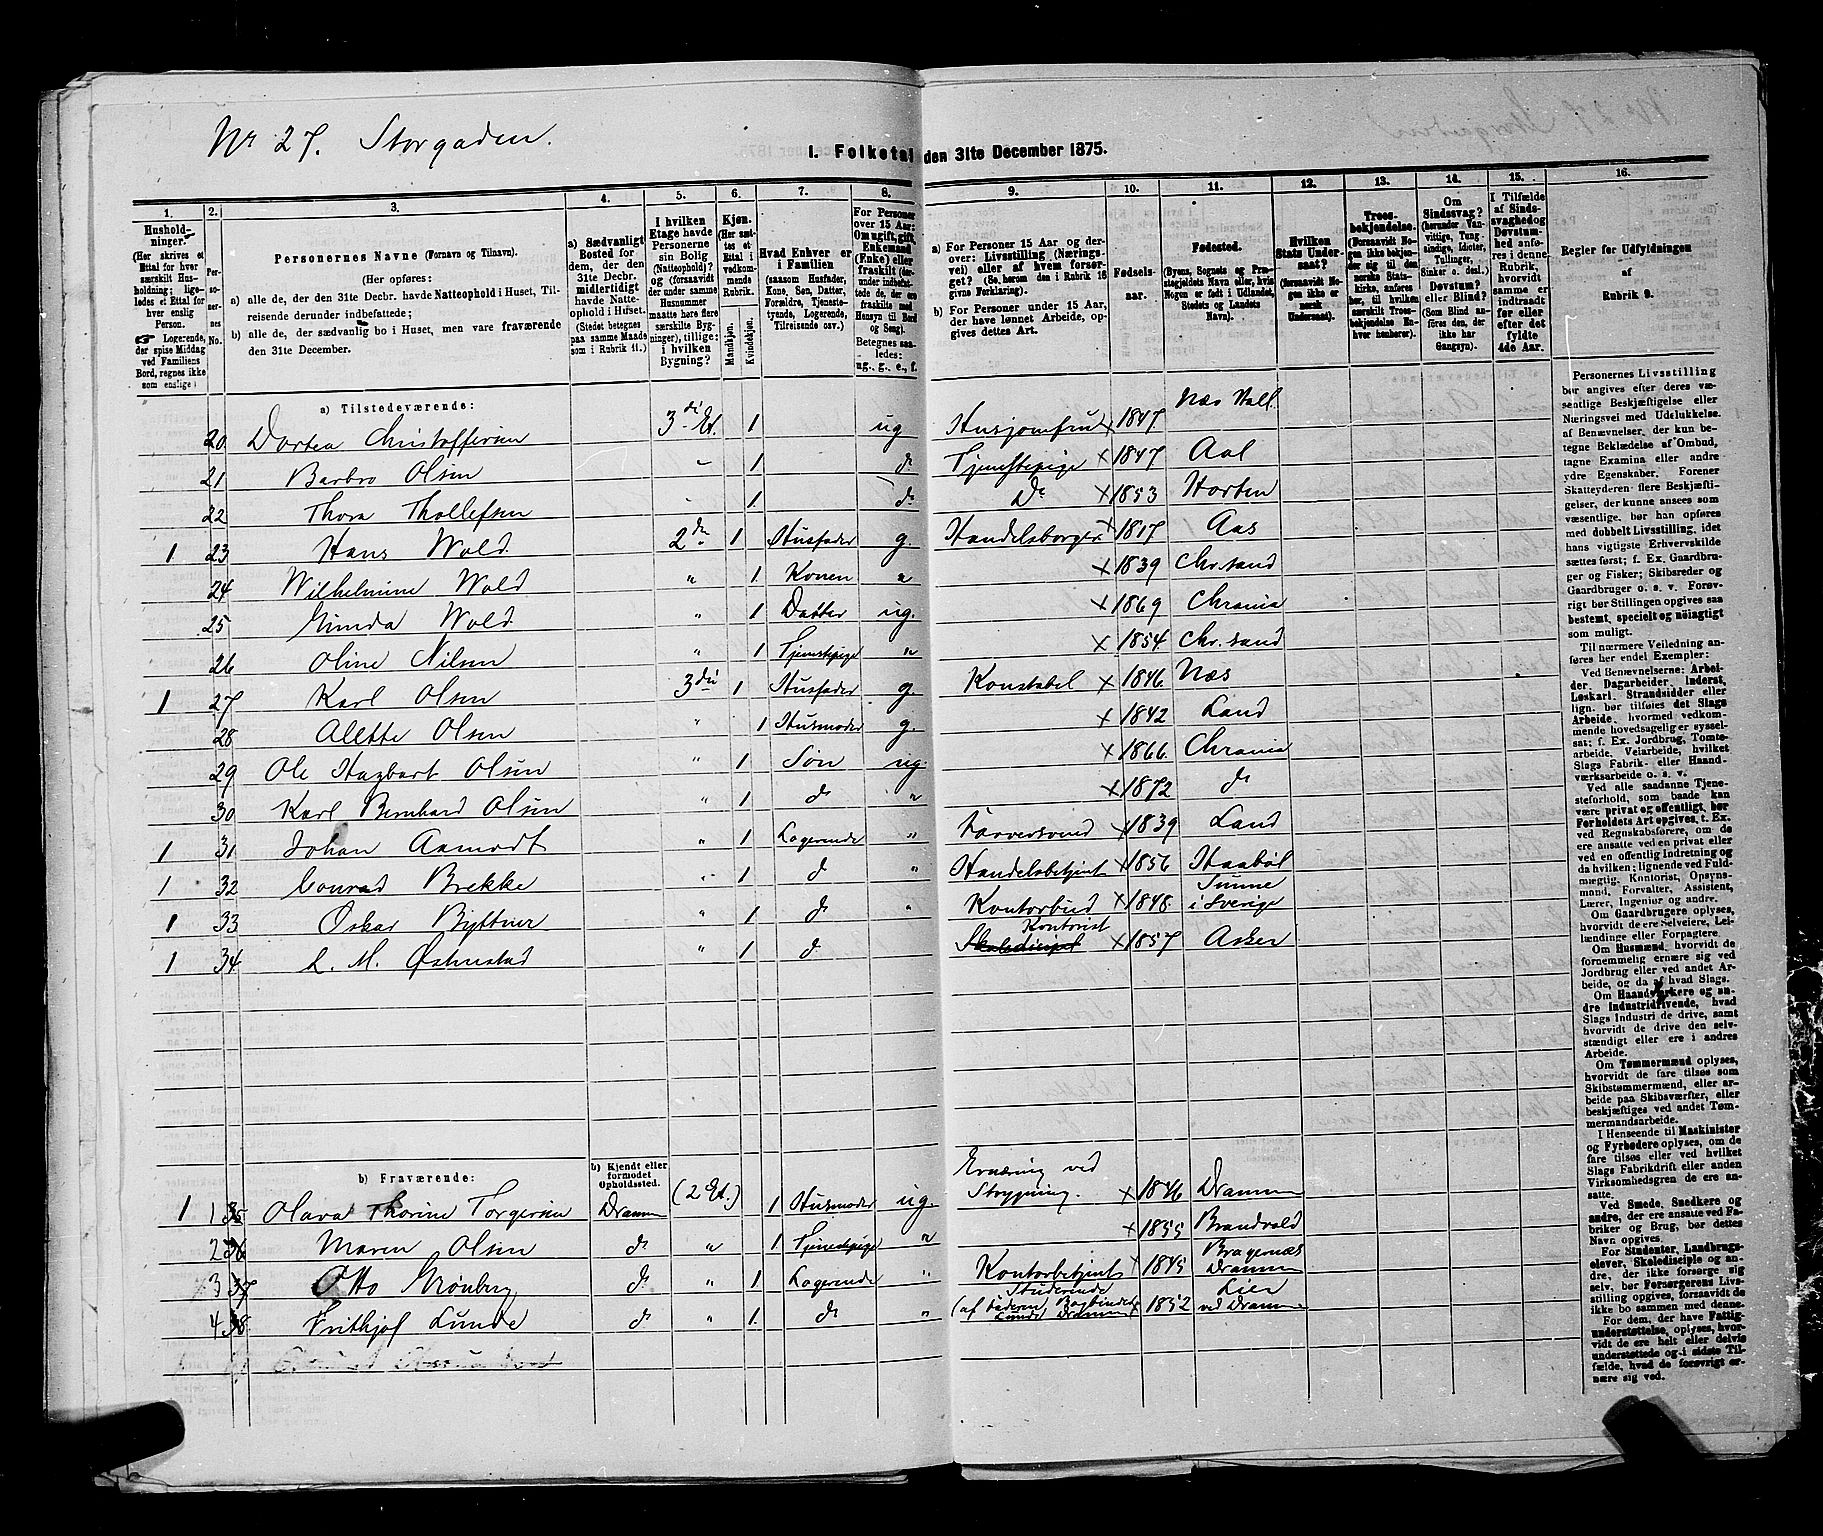 Nr 27. Storgaden.
I. Folketal den 31te December 1875.
1. 2. 3. 4. 5. 6. 7. 8. 9. 10. 11. 12. 13. 14. 15. 16.
Hushold-
ninger.
(Her skrives et
Ettal for hver
særskilt Hus-
holdning; lige-
ledes et Ettal for
hver enslig
Person.
☞ Logerende,
der spise Middag
ved Familiens
Bord, regnes ikke
som enslige)
Per-
so-
nernes
No.
Personernes Navne (Fornavn og Tilnavn).
(Her opføres:
a) alle de, der den 31te Decbr. havde Natteophold i Huset, Til-
reisende derunder indbefattede;
b) alle de, der sædvanlig bo i Huset, men vare fraværende
den 31te December.
a) Sædvanligt
Bosted for
dem, der den
31te Decbr.
midlertidigt
havde Natte-
ophold i Huset.
(Stedet betegnes
paa samme Maade
som i Rubrik 11.)
I hvilken
Etage havde
Personerne
sin Bolig
(Natteophold)?
(forsaavidt
der under samme
Husnummer
maatte høre flere
særskilte Byg-
ninger), tillige:
i hvilken
Bygning?
Kjøn.
(Her sæt-
tes et
Ettal i
vedkom-
mende
Rubrik.
Mandkjøn.
Kvindekjøn.
Hvad Enhver er
i Familien
(saasom Husfader,
Kone, Søn, Datter,
Forældre, Tjeneste-
tyende, Logerende,
Tilreisende osv.)
For Personer
over 15 Aar:
Om ugift, gift,
Enkemand
(Enke) eller
fraskilt (der-
under indbefat-
tede de, der ere
fraskilte i
Hensyn til Bord
og Seng).
Betegnes saa-
ledes:
ug., g., e., f.
a) For Personer 15 Aar og der-
over: Livsstilling (Nærings-
vei) eller af hvem forsør-
get? (Se herom den i Rubrik 16
givne Forklaring).
b) For Personer under 15 Aar,
der have lønnet Arbeide, op-
gives dettes Art.
Fødsels-
aar.
Fødested.
(Byens, Sognets og Præ-
stegjeldets Navn eller, hvis
Nogen er født i Udlandet,
Stedets og Landets
Navn).
Hvilken
Stats Under-
saat?
(Forsaavidt No-
gen ikke er
norsk
Undersaat).
Troes-
bekjendelse.
(Forsaavidt No-
gen ikke bekjen-
der sig til den
norske Stats-
kirke, anføres
her, til hvilken
særskilt Troes-
bekjendelse En-
hver henhører).
Om
Sindssvag?
(herunder Van-
vittige, Tung-
sindige, Idioter,
Tullinger,
Sinker o. desl.)
Døvstum?
eller Blind?
(Som Blind an-
føres den, der
ikke har
Gangsyn).
I Tilfælde
af Sinds-
svaghed og
Døvstum-
hed anfø-
res i denne
Rubrik,
hvorvidt
samme er
indtraadt
før eller
efter det
fyldte
4de Aar.
Regler for Udfyldningen
af
Rubrik 9.
a) Tilstedeværende:
20 Dortea Christoffersen 3die Et. 1 ug Husjomfru × 1847 Næs Hall.
21 Barbro Olsen " 1 do Tjenstepige × 1847 Aal
22 Thora Thollefsen " 1. do Do × 1853 Horten
1 23 Hans Wold 2den 1 Husfader g. Handelsborger × 1817 Aas
24 Wilhelmine Wold " 1 Konen " × 1839 Chr.sand
25 Gunda Wold " 1 Datter ug. × 1869 Chrania
26 Oline Nilsen " 1 Tjenstepige " × 1854 Chr.sand
1 27 Karl Olsen 3die 1 Husfader g. Konstabel × 1846 Næs
28 Alette Olsen " 1 Husmoder g. × 1842 Land
29 Ole Hagbart Olsen " 1 Søn ug. × 1866. Chrania
30 Karl Bernhard Olsen " 1 do " × 1872 do
1 31 Johan Aamodt " 1 Logerende " Farversvend × 1839 Land
1 32 Conrad Brekke " 1 do " Handelsbetjent × 1856 Haabøl
1 33 Oskar Byttner " 1 do " Kontorbud × 1848. Sunne i Sverige
1 34 L. M. Østenstad " 1 do Skoledisipel Kontorist × 1857 Asker
b) Fraværende:
b) Kjendt eller
formodet
Opholdssted.
1 1 35 Olava Thorine Torgersen Drammen (2 Et.) 1 Husmoder ug. Ernæring ved Strygning. × 1846 Drammen
2 36 Maren Olsen do " 1 Tjenestepige " × 1855 Brandvold
3 37 Otto Grønberg do " 1 Logerende " Kontorbetjent × 1845 Bragernæs Drammen
4 38. Frithjof Lunde do " 1. do " Studerende (af Faderen, Bogbinder Lunde Drammen × 1852 Lier ved Drammen
Personernes Livsstilling
bør angives efter deres væ-
sentlige Beskjæftigelse eller
Næringsvei med Udelukkelse
af Benævnelser, der kun be-
tegne Beklædelse af Ombud,
tagne Examina eller andre
ydre Egenskaber. Forener
Skatteyderen flere Beskjæfti-
gelser, der kunne ansees som
væsentlige, bør han opføres
med dobbelt Livsstilling, idet
hans vigtigste Erhvervskilde
sættes først; f. Ex. Gaardbru-
ger og Fisker; Skibsreder og
Gaardbruger o. s. v. Forøv-
rigt bør Stillingen opgives saa
bestemt, specielt og nøiagtigt
som muligt.
Til nærmere Veiledning an-
føres her endel Exempler:
Ved Benævnelserne: Arbei-
der, Dagarbeider, Inderst,
Løskarl, Strandsidder eller
lign. bør tilføies det Slags
Arbeide, hvormed vedkom-
mende hovedsagelig er syssel-
sat; f. Ex. Jordbrug, Tomte-
arbeide, Veiarbeide, hvilket
Slags Fabrik- eller Haand-
værksarbeide o. s. v.
Ved alle saadanne Tjene-
steforhold, som baade kan
være privat og offentligt, bør
Forholdets Art opgives, t. Ex.
ved Regnskabsførere, om de
ere ansatte ved en privat eller
ved en offentlig Indretning og
da hvilken; lignende ved Fuld-
mægtig, Kontorist, Opsyns-
mand, Forvalter, Assistent,
Lærer, Ingeniør og andre.
Om Gaardbrugere oplyses,
hvorvidt de ere Selveiere, Lei-
lændinge eller Forpagtere.
Om Husmænd, hvorvidt de
fornemmelig ernære sig ved
Jordbrug eller ved andet Ar-
beide, og da af hvad Slags.
Om Haandværkere og an-
dre Industridrivende, hvad
Slags Industri de drive, samt
hvorvidt de drive den selv-
stændigt eller ere i andres
Arbeide.
Om Tømmermænd oplyses,
hvorvidt de fare tilsøs som
Skibstømmermænd, eller ar-
beide paa Skibsværfter, eller
beskjæftiges ved andet Tøm-
mermandsarbeide.
I Henseende til Maskinister
og Fyrbødere oplyses, om de
fare tilsøs eller ved hvilket
Slags Fabrikdrift eller anden
Virksomhedsgren de ere an-
satte.
Ved Smede, Snedkere og
andre, der ere ansatte ved Fa-
briker og Brug, bør dettes
Navn opgives.
For Studenter, Landbrugs-
elever, Skoledisciple og an-
dre, der ikke forsørge sig
selv, bør Forsørgerens Livs-
stilling opgives, forsaavidt de
ikke bo sammen med denne.
For dem, der have Fattig-
understøttelse, oplyses, hvor-
vidt de ere helt eller delvis
understøttede og i sidste Til-
fælde, hvad de forøvrigt er-
nære sig ved.